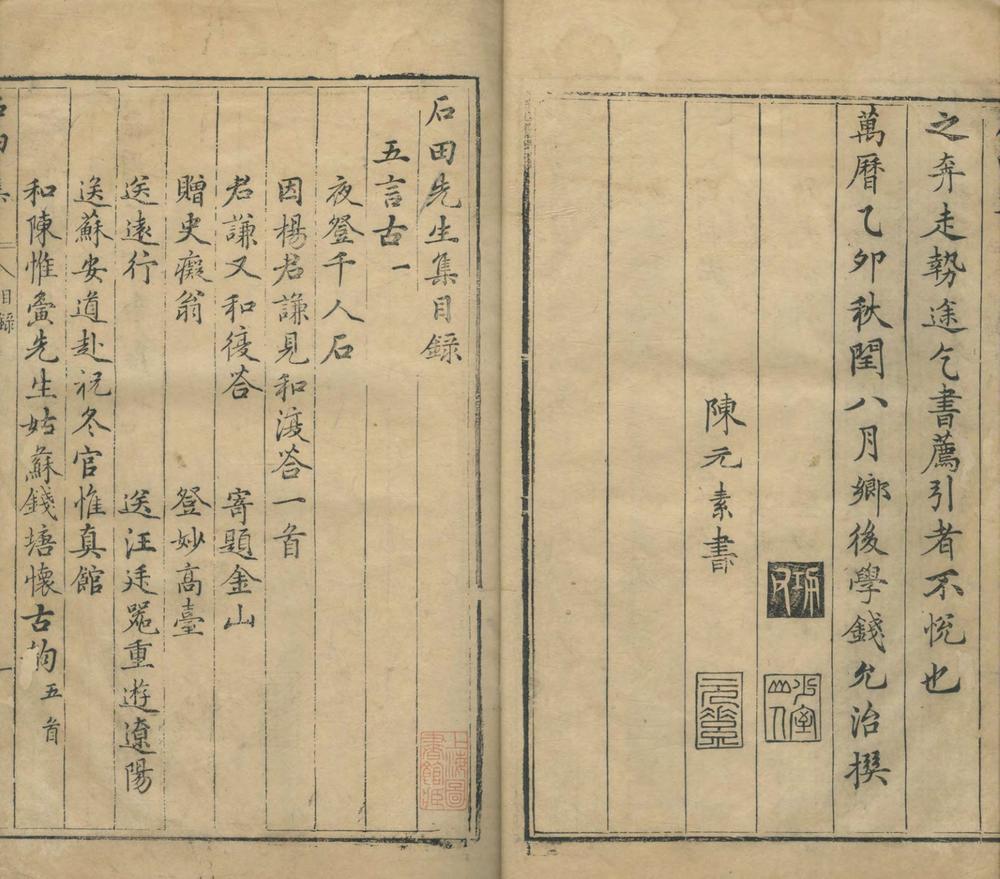 之奔走勢途乞書薦引者不悅也
萬曆乙卯秋閏八月鄉後學錢允治撰
陳元素書
石田先生集目錄
五言古一
夜登千人石
因楊君謙見和復答一首
君謙又和復答 寄題金山
贈史癡翁 登妙高臺
送遠行 送汪廷器重遊遼陽
送蘇安道赴祝冬官惟真館
和陳惟夤先生姑蘇錢塘懷古韵五首
石田集 目錄 一
上海圖書館藏